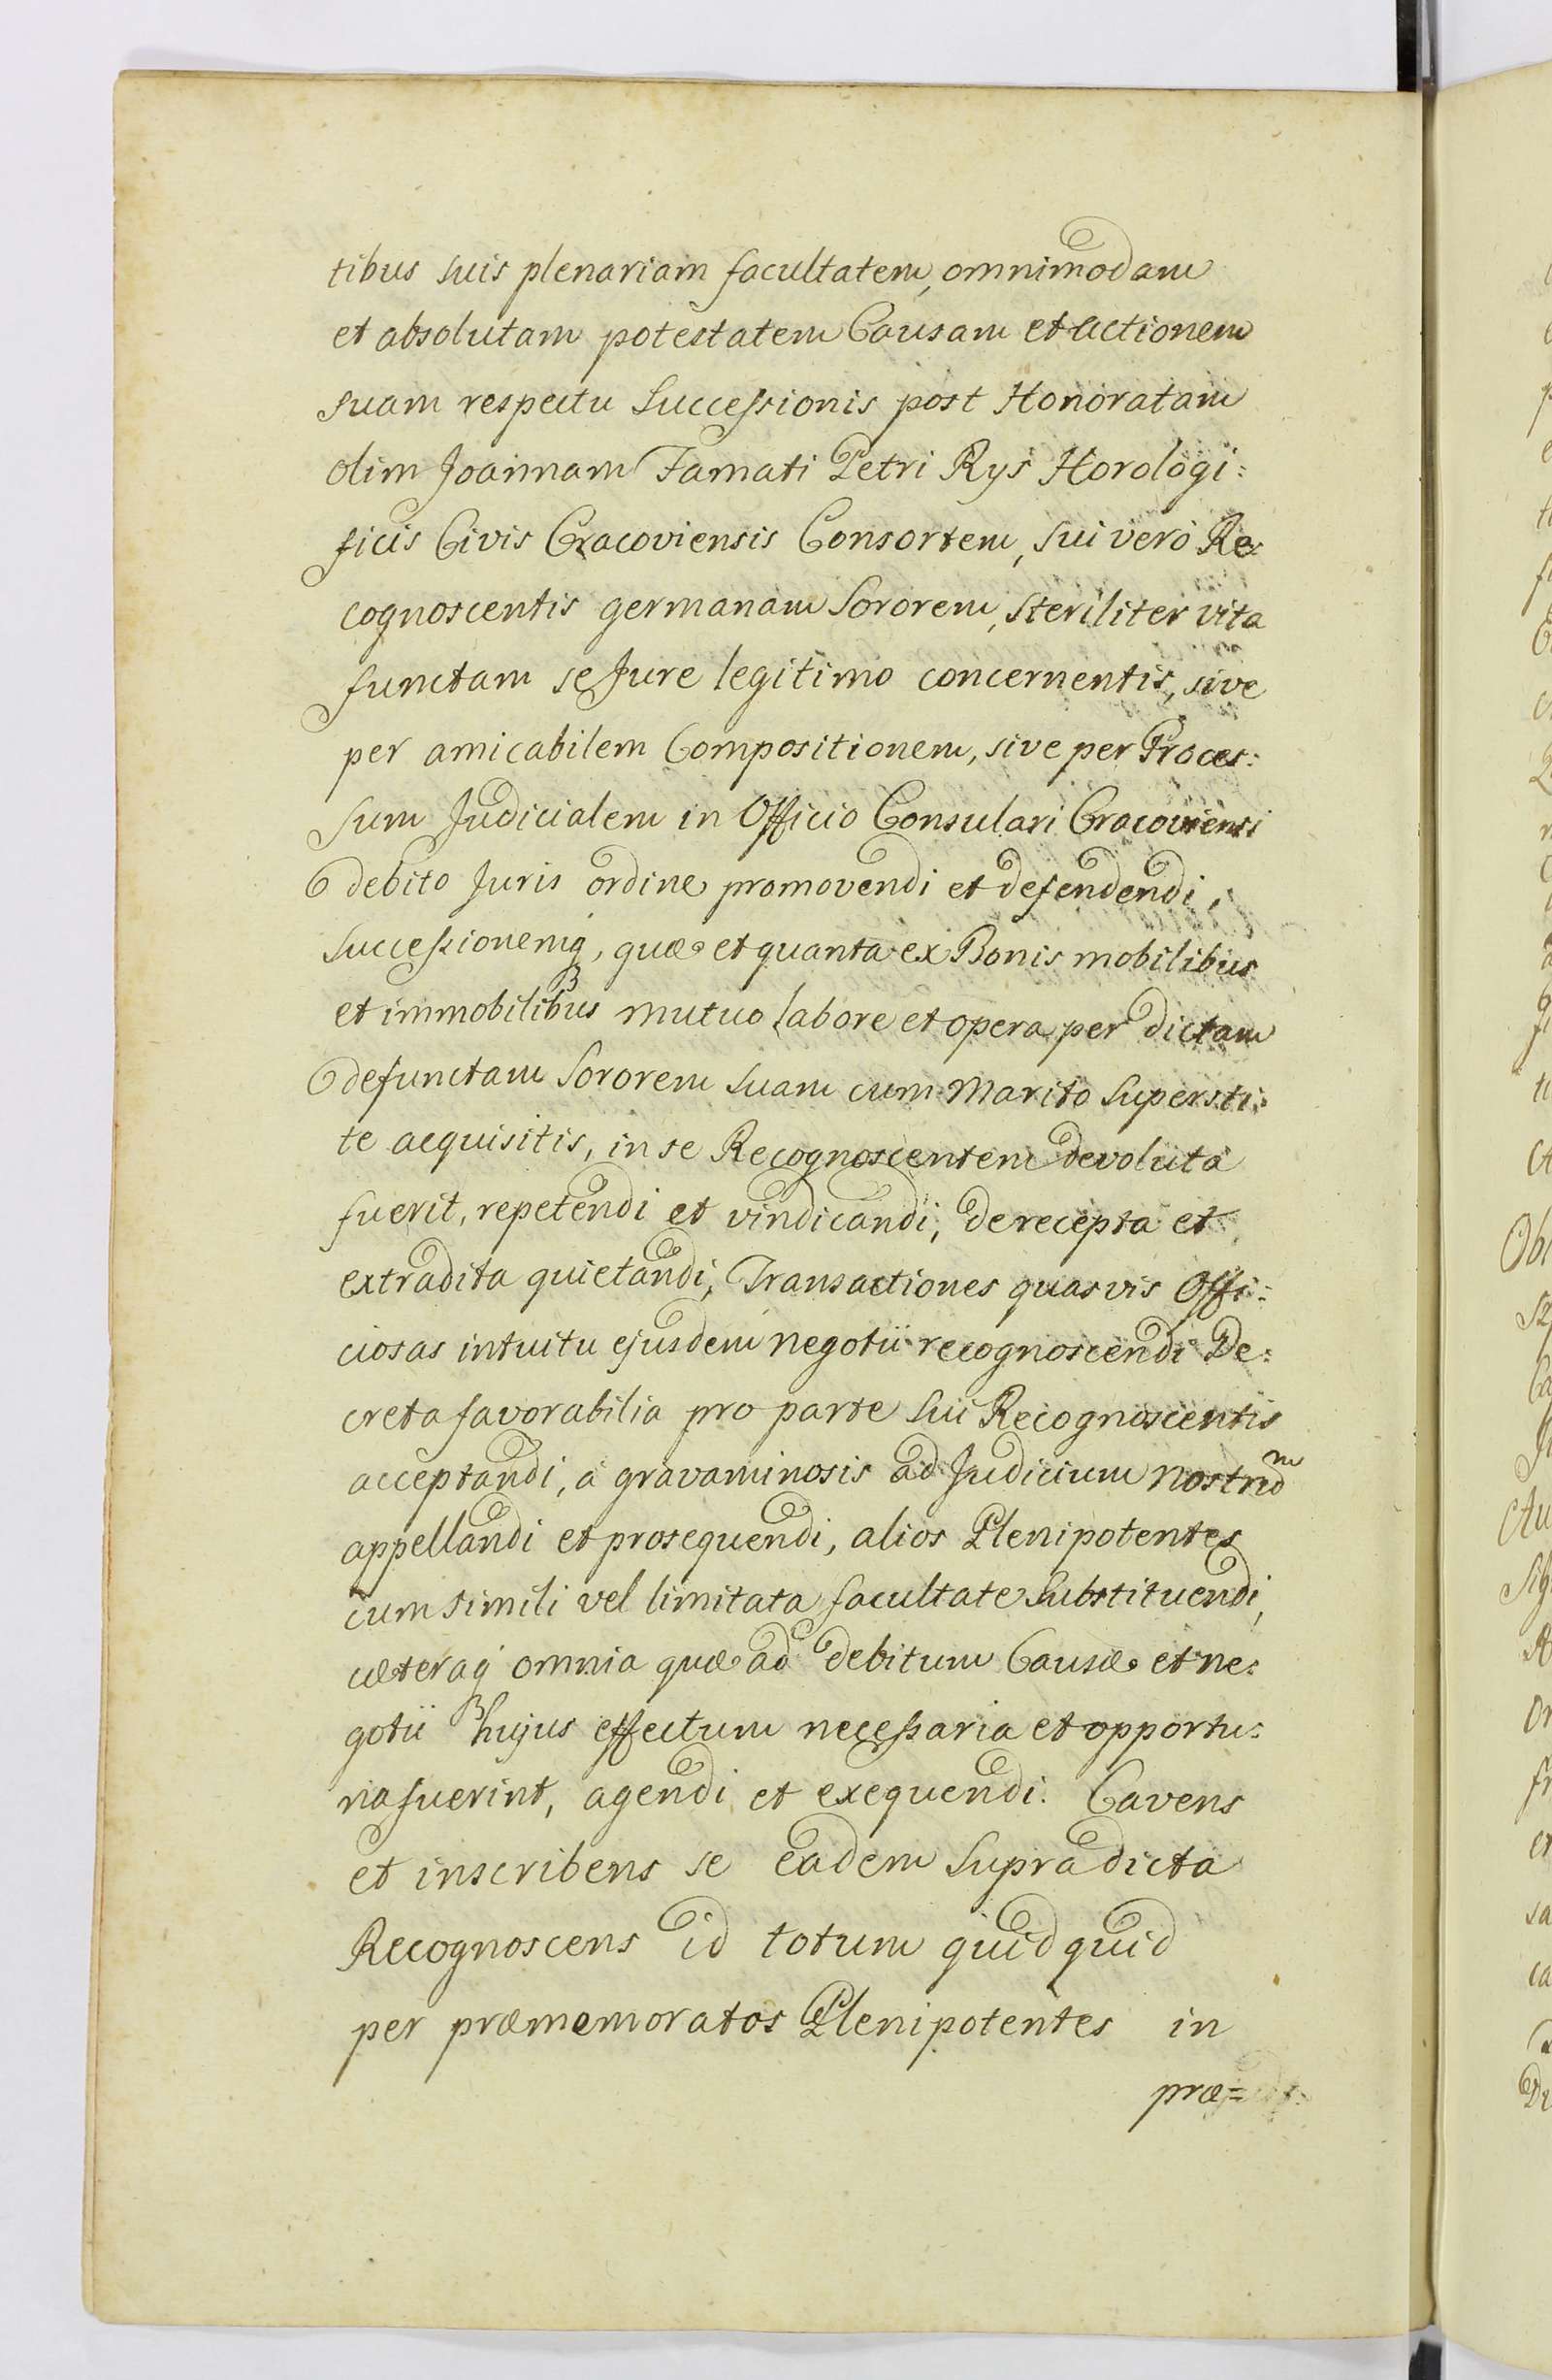 tibus suis plenariam facultatem, omnimodam
et absolutam potestatem Causam et actionem
suam respectu Successionis post Honoratam
olim Joannam Famati Petri Rys Horologi:
ficis Civis Cracoviensis Consortem, sui vero Re:
cognoscentis germanam Sororem, steriliter vita
functam se Jure legitimo concernentis, sive
per amicabilem Compositionem, sive per Proces:
sum Judicialem in Officio Consulari Cracoviensi
debito Juris ordine promovendi et defendendi,
Successionemq, quæ et quanta ex Bonis mobilibus
et immobilibus mutuo labore et opera per dictam
defunctam Sororem suam cum Marito Supersti:
te acquisitis, in se Recognoscentem devoluta
fuerit, repetendi et vindicandi, de recepta et
extradita quietandi, Transactiones quasvis Offi:
ciosas intuitu ejusdem negotii recognoscendi De:
creta favorabilia pro parte sui Recognoscentis
acceptandi, à gravaminosis ad Judicium nostrum
appellandi et prosequendi, alios Plenipotentes
cum simili vel limitata facultate substituendi,
cæteraq omnia quæ ad debitum Causæ et ne:
gotii hujus effectum necessaria et opportu:
na fuerint, agendi et exequendi. Cavens
et inscribens se eadem supradicta
Recognoscens id totum quidquid
per præmemoratos Plenipotentes in
præ=